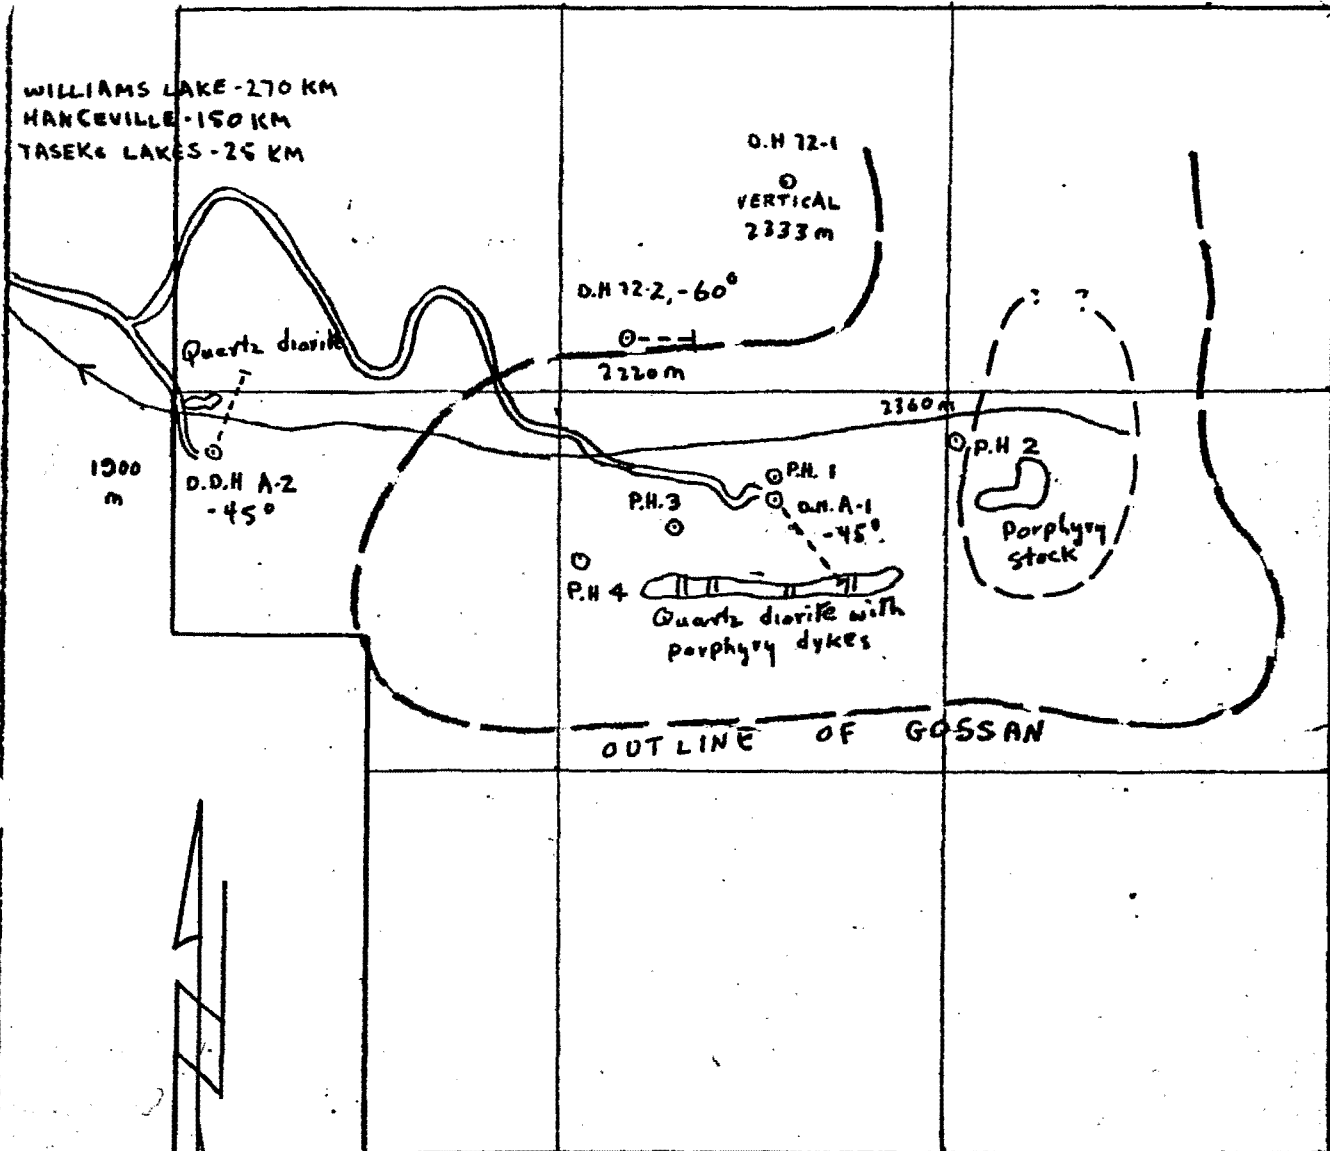 WILLIAMS LAKE - 270 KM
HANCEVILLE - 150 KM
TASEKO LAKES - 25 KM
D.H 72-1
VERTICAL
2333 m
D.H 72-2, -60°
2220 m
Quartz diorite
2360 m
P.H 2
1900
m
D.D.H A-2
-45°
P.H. 1
P.H. 3
D.H. A-1
-45°
Porphyry
stock
P.H 4
Quartz diorite with
porphyry dykes
OUTLINE OF GOSSAN
? ?